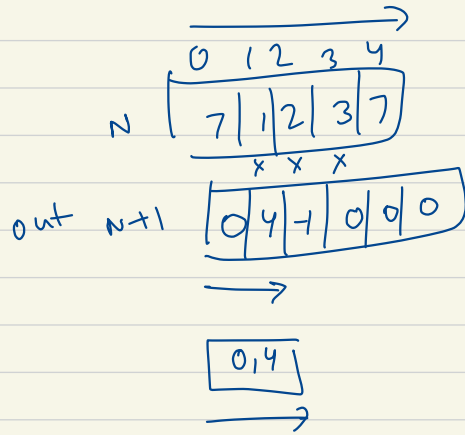 0 1 2 3 4
N 7 1 2 3 7
x x x
out N+1 0 4 -1 0 0 0
0,4